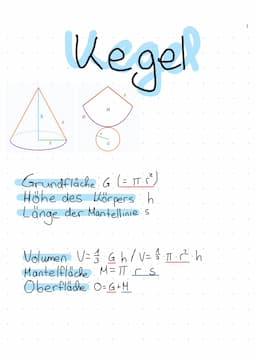 Kegel
Grundfläche: G (= π r²)
Höhe des Körpers h
Länge der Mantellinie s
Volumen V=⅓ G h / V=⅓·π·r²·h
Mantelfläche M=π r s
Oberfläche O=G+M